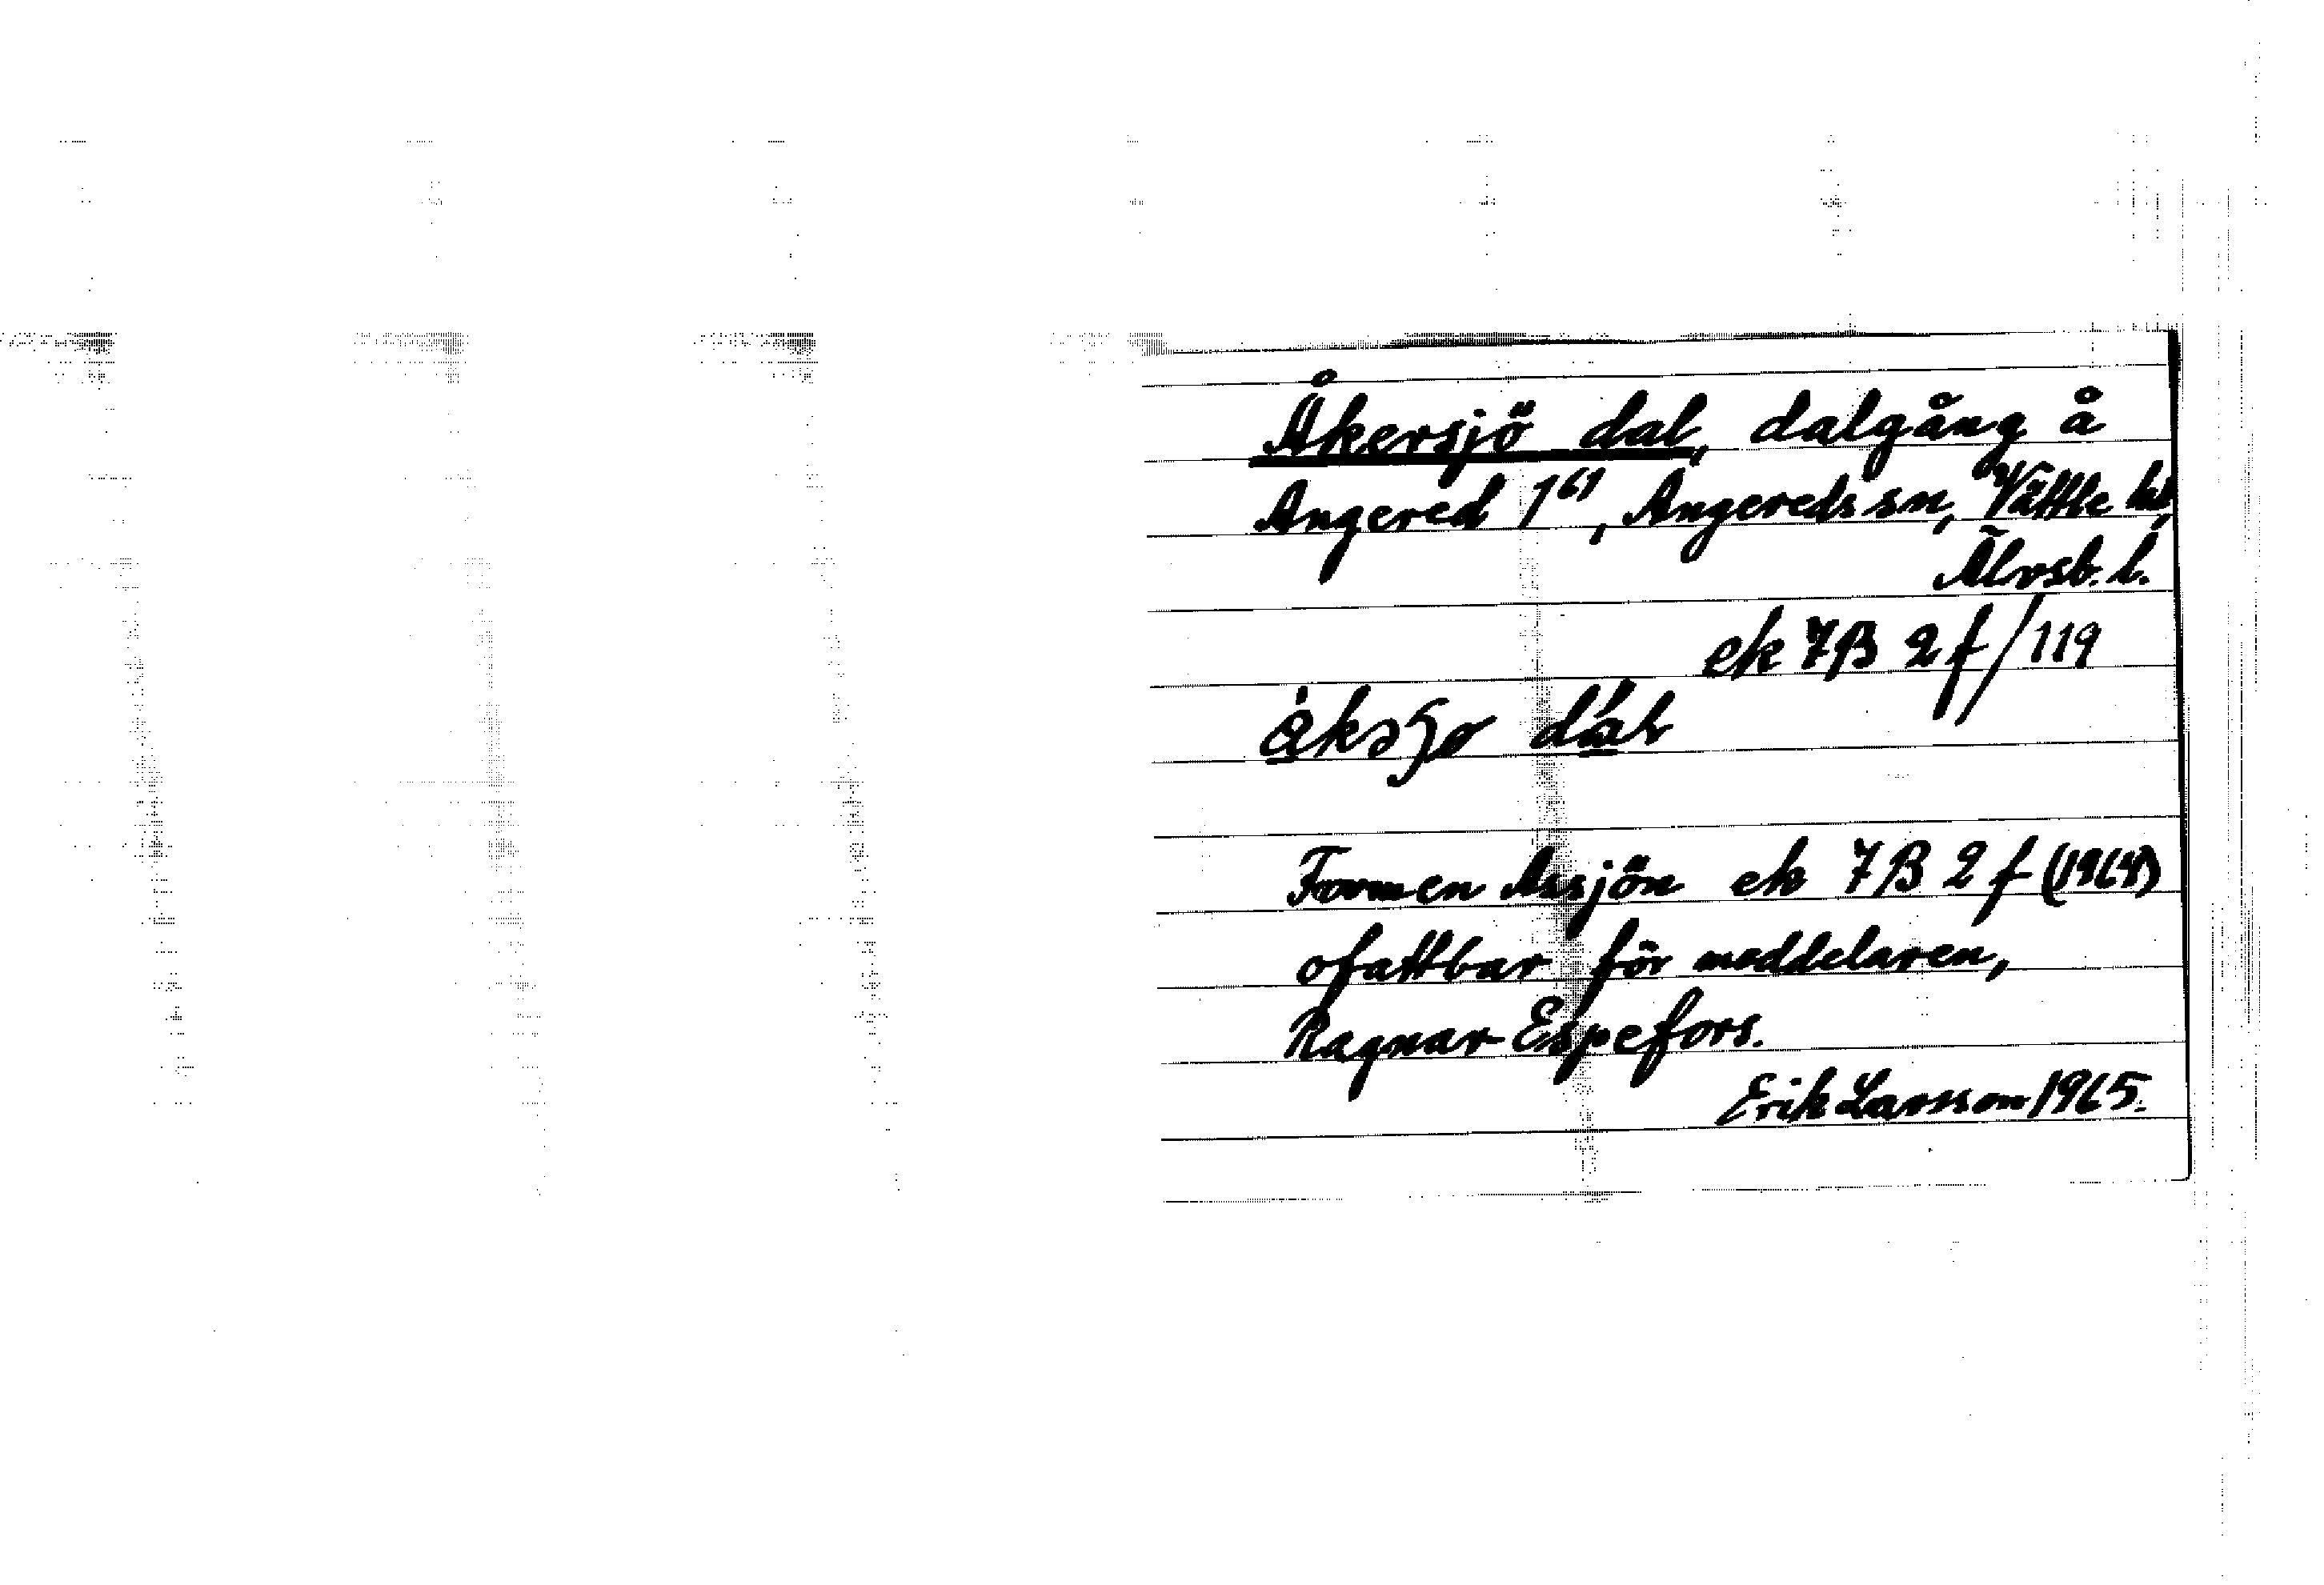 Åkersjö dal, dalgång å
Angered 1⁶¹, Angereds sn, Vättle hd,
Älvsb. l.
ek 7B 2f/119
dal
Formen Assjön ek 7B 2f (1964)
ofattbar för meddelaren,
Ragnar Espefors.
Erik Larsson 1965.